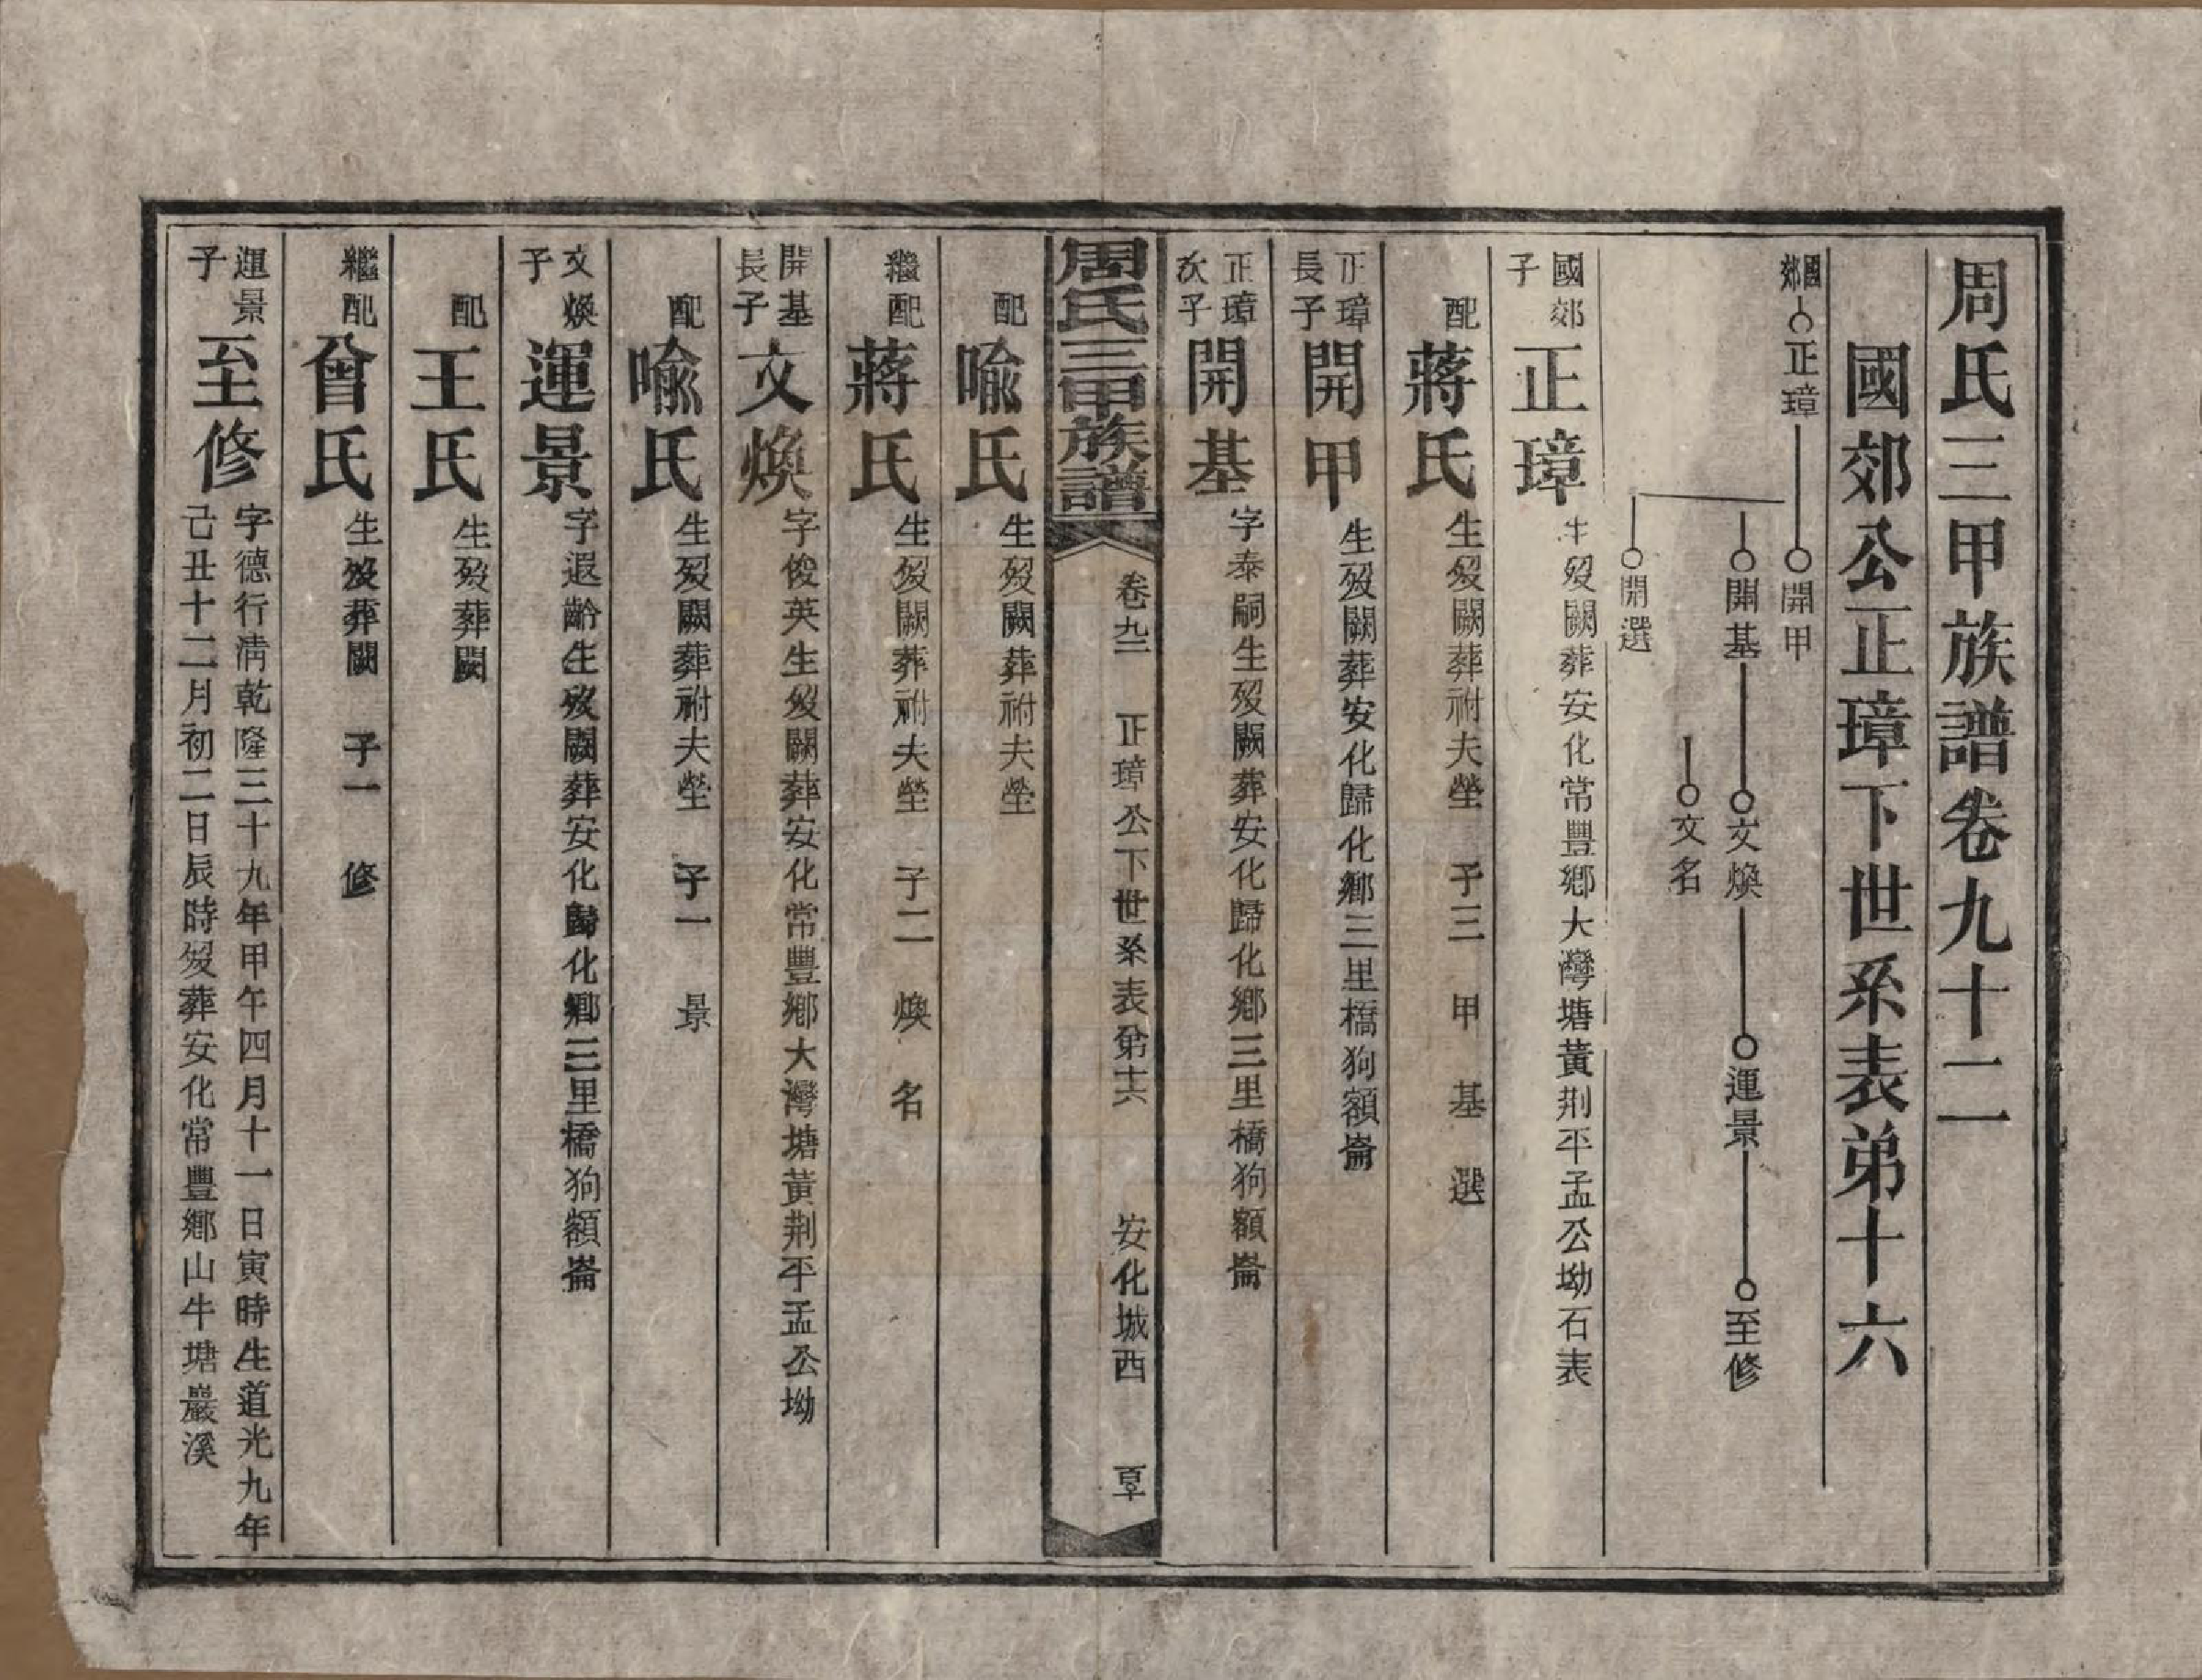 周氏三甲族譜卷九十二
國郊公正璋下世系表弟十六
國郊
正璋
開甲
開基
文煥
運景
至修
文名
開選
國郊子
正璋
生歿闕葬安化常豐鄉大灣塘黃荆平孟公坳石表
配
蔣氏
生歿闕葬祔夫塋 子三 甲 基 選
正璋長子
開甲
生歿闕葬安化歸化鄉三里橋狗額崙
正璋次子
開基
字泰嗣生歿闕葬安化歸化鄉三里橋狗額崙
周氏三甲族譜
卷九二 正璋公下世系表弟十六 安化城西
配
喻氏
生歿闕葬祔夫塋
繼配
蔣氏
生歿闕葬祔夫塋 子二 煥 名
開基長子
文煥
字俊英生歿闕葬安化常豐鄉大灣塘黃荆平孟公坳
配
喻氏
生歿闕葬祔夫塋 子一 景
文煥子
運景
字遐齡生歿闕葬安化歸化鄉三里橋狗額崙
配
王氏
生歿葬闕
繼配
曾氏
生歿葬闕 子一 修
運景子
至修
字德行清乾隆三十九年甲午四月十一日寅時生道光九年
己丑十二月初二日辰時歿葬安化常豐鄉山牛塘巖溪